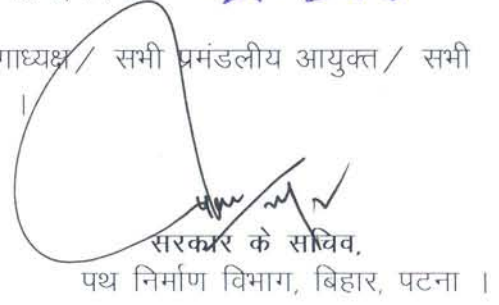 सभी प्रमंडलीय आयुक्त / सभी
।
सरकार के सचिव,
पथ निर्माण विभाग, बिहार, पटना ।